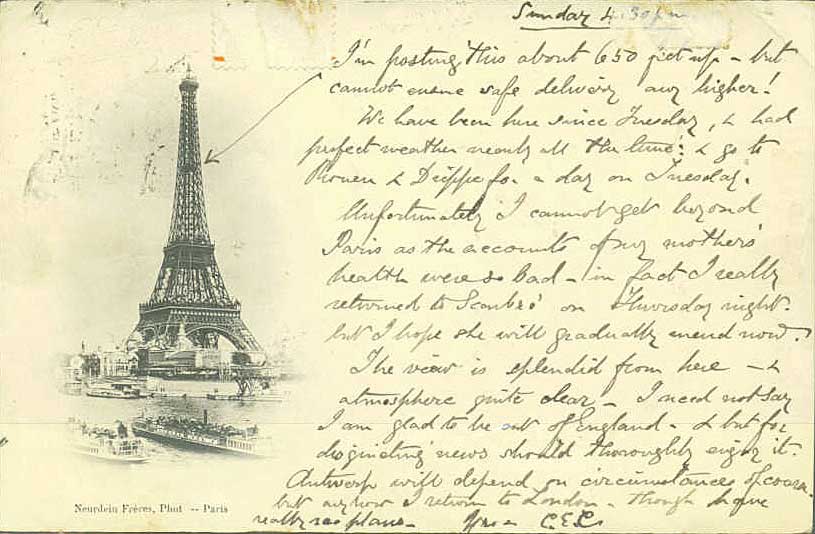 Sunday 4.30pm
I'm posting this about 650 feet up - but
cannot ensure safe delivery any higher!
We have been here since Tuesday, & had
perfect weather nearly all the time: & go to
Rouen & Dieppe for a day on Tuesday.
Unfortunately I cannot get beyond
Paris as the accounts of my mother's
health were so bad - in fact I really
returned to on Thursday night.
but I hope she will gradually mend now.
The view is splendid from here - &
atmosphere quite clear - I need not say
I am glad to be out of England - & but for
disquieting news should thoroughly enjoy it.
Antwerp will depend on circumstances of course.
but anyhow I return to London - though have
really no plans - Yrs
Neurdein Frères, Phot -- Paris